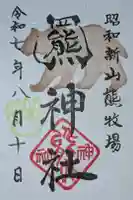 昭和新山熊牧場
熊神社
令和七年八月十日